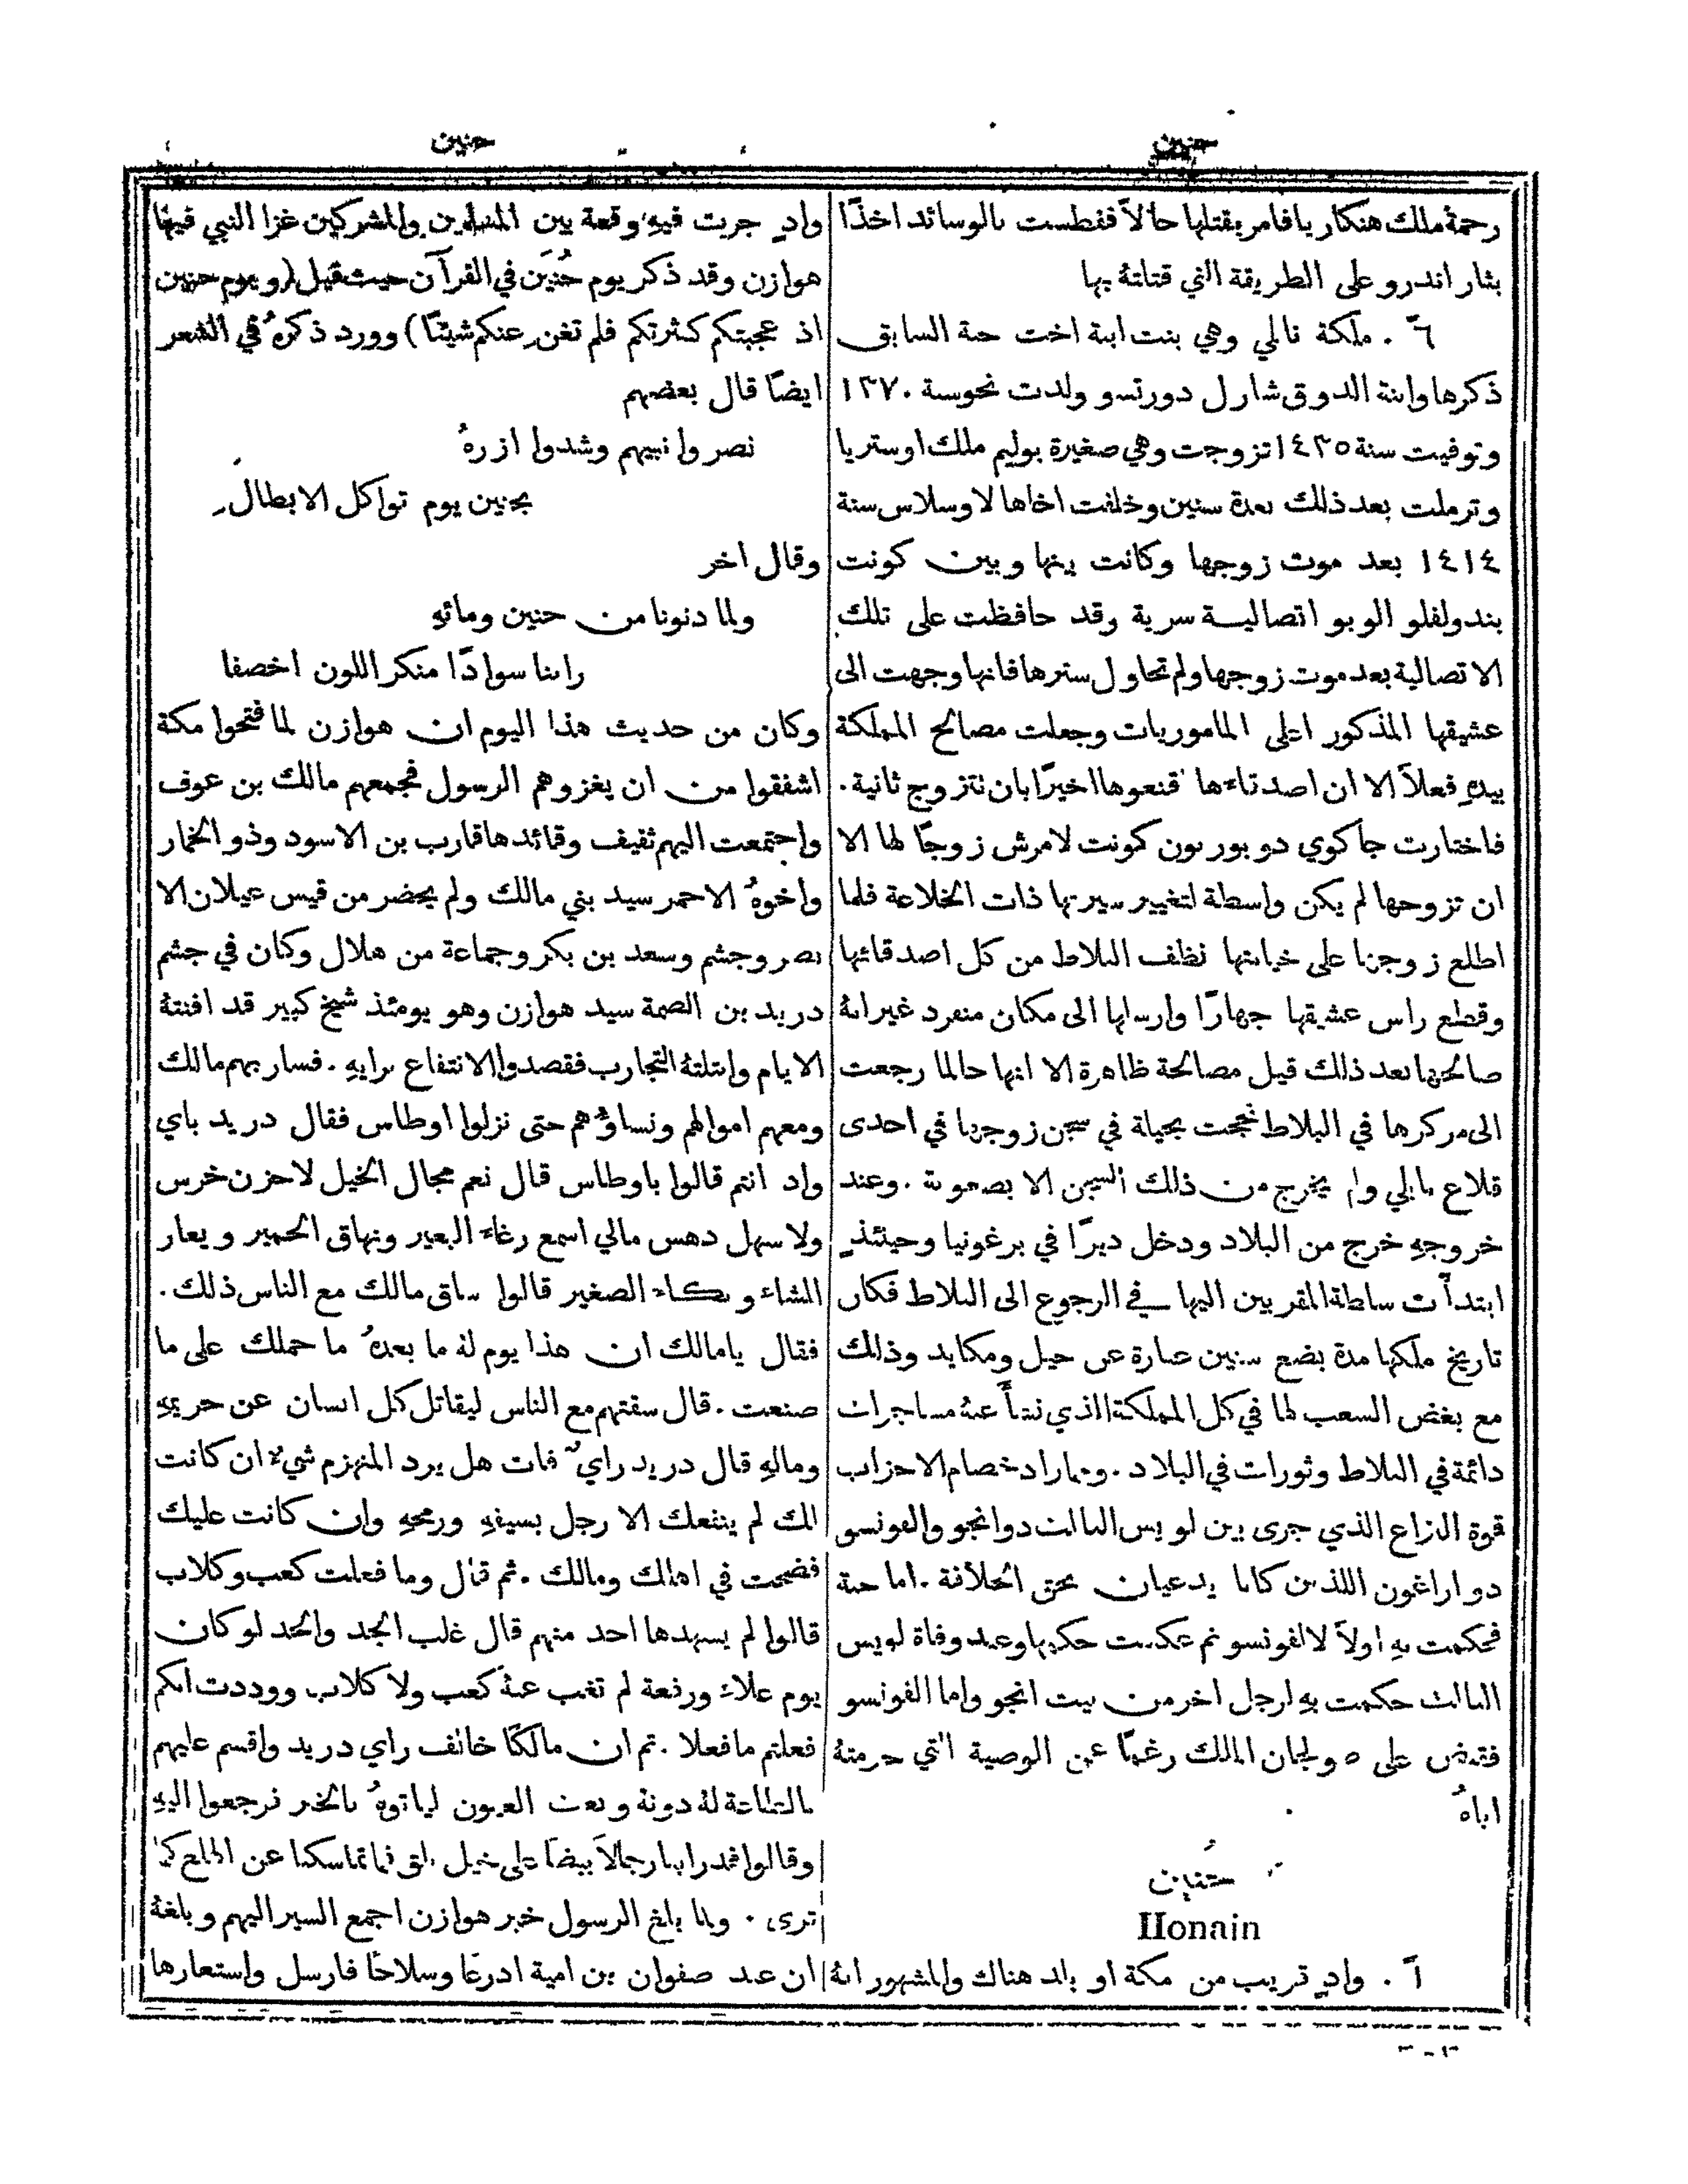 حنين
حنين
رحمة ملك هنكاريا فامر بقتلها حالاً ففطست بالوسائد اخذًا
بثار اندرو على الطريقة التي قتلته بها
٦ً . ملكة نابلي وهي بنت ابنة اخت حنة السابق
ذكرها وابنة الدوق شارل دورتسو ولدت نحو سنة ١٣٧٠
وتوفيت سنة ١٤٣٥ تزوجت وهي صغيرة بوليم ملك اوستريا
وترملت بعد ذلك بعدة سنين وخلفت اخاها لاوسلاس سنة
١٤١٤ بعد موت زوجها وكانت بينها وبين كونت
بندولفلو الوبو اتصالية سرية وقد حافظت على تلك
الاتصالية بعد موت زوجها ولم تحاول سترها فانها وجهت الى
عشيقها المذكور اعلى الماموريات وجعلت مصالح المملكة
بيدهِ فعلاً الا ان اصدقاءها قنعوها اخيرًا بان تتزوج ثانية .
فاختارت جاكوي دو بوربون كونت لامرش زوجًا لها الا
ان تزوجها لم يكن واسطة لتغيير سيرتها ذات الخلاعة فلما
اطلع زوجها على خيانتها نظف البلاط من كل اصدقائها
وقطع راس عشيقها جهارًا وارسلها الى مكان منفرد غير انهُ
صالحها بعد ذلك قيل مصالحة ظاهرة الا انها حالما رجعت
الى مركزها في البلاط نجحت بحيلة في سجن زوجها في احدى
قلاع نابلي ولم يخرج من ذلك السجن الا بصعوبة . وعند
خروجهِ خرج من البلاد ودخل ديرًا في برغونيا وحينئذٍ
ابتدأَت سلطة المقربين اليها في الرجوع الى البلاط فكان
تاريخ ملكها مدة بضع سنين عبارة عن حيل ومكايد وذلك
مع بغض الشعب لها في كل المملكة الذي نشأَ عنهُ مشاجرات
دائمة في البلاط وثورات في البلاد . ومما زاد خصام الاحزاب
قوة النزاع الذي جرى بين لويس الثالث دوانجو والفونسو
دو اراغون اللذين كانا يدعيان بحق الخلافة . اما حنة
فحكمت بهِ اولاً لالفونسو ثم عكست حكمها وعند وفاة لويس
الثالث حكمت بهِ لرجل اخر من بيت انجو واما الفونسو
فقبض على صولجان الملك رغمًا عن الوصية التي حرمتهُ
اياهُ
حُنَين
Honain
١ً . وادٍ قريب من مكة او بلد هناك والمشهور انهُ
وادٍ جرت فيهِ وقعة بين المسلمين والمشركين غزا النبي فيها
هوازن وقد ذكر يوم حُنَين في القرآن حيث قيل (ويوم حنين
اذ عجبتكم كثرتكم فلم تغنِ عنكم شيئًا) وورد ذكرهُ في الشعر
ايضًا قال بعضهم
نصروا نبيهم وشدوا ازرهُ
بحنين يوم تواكل الابطالِ
وقال اخر
ولما دنونا من حنين ومائهِ
راينا سوادًا منكر اللون اخصفا
وكان من حديث هذا اليوم ان هوازن لما فتحوا مكة
اشفقوا من ان يغزوهم الرسول فجمعهم مالك بن عوف
واجتمعت اليهم ثقيف وقائدها قارب بن الاسود وذو الخمار
واخوهُ الاحمر سيد بني مالك ولم يحضر من قيس عيلان الا
نصر وجشم وسعد بن بكر وجماعة من هلال وكان في جشم
دريد بن الصمة سيد هوازن وهو يومئذ شيخ كبير قد افنتهُ
الايام وابتلتهُ التجارب فقصدوا الانتفاع برايهِ . فسار بهم مالك
ومعهم اموالهم ونساؤُهم حتى نزلوا اوطاس فقال دريد باي
واد انتم قالوا باوطاس قال نعم مجال الخيل لا حزن خرس
ولا سهل دهس مالي اسمع رغاء البعير ونهاق الحمير ويعار
الشاء وبكاء الصغير قالوا ساق مالك مع الناس ذلك .
فقال يا مالك ان هذا يوم لهُ ما بعدهُ ما حملك على ما
صنعت . قال سقتهم مع الناس ليقاتل كل انسان عن حريمهِ
ومالهِ قال دريد رايٌ فات هل يرد المنهزم شيءٌ ان كانت
لك لم ينفعك الا رجل بسيفهِ ورمحهِ وان كانت عليك
فضحت في اهلك ومالك . ثم قال وما فعلت كعب وكلاب
قالوا لم يشهدها احد منهم قال غلب الجد والحد لو كان
يوم علاء ورفعة لم تغب عنهُ كعب ولا كلاب ووددت انكم
فعلتم ما فعلا . ثم ان مالكًا خالف راي دريد واقسم عليهم
بالطاعة لهُ دونهُ وبعث العيون لياتوهُ بالخبر فرجعوا اليهِ
وقالوا قد راينا رجالاً بيضًا على خيل بلق فما تماسكنا عن الهلع كما
ترى . ولما بلغ الرسول خبر هوازن اجمع السير اليهم وبلغهُ
ان عند صفوان بن امية ادرعًا وسلاحًا فارسل واستعارها